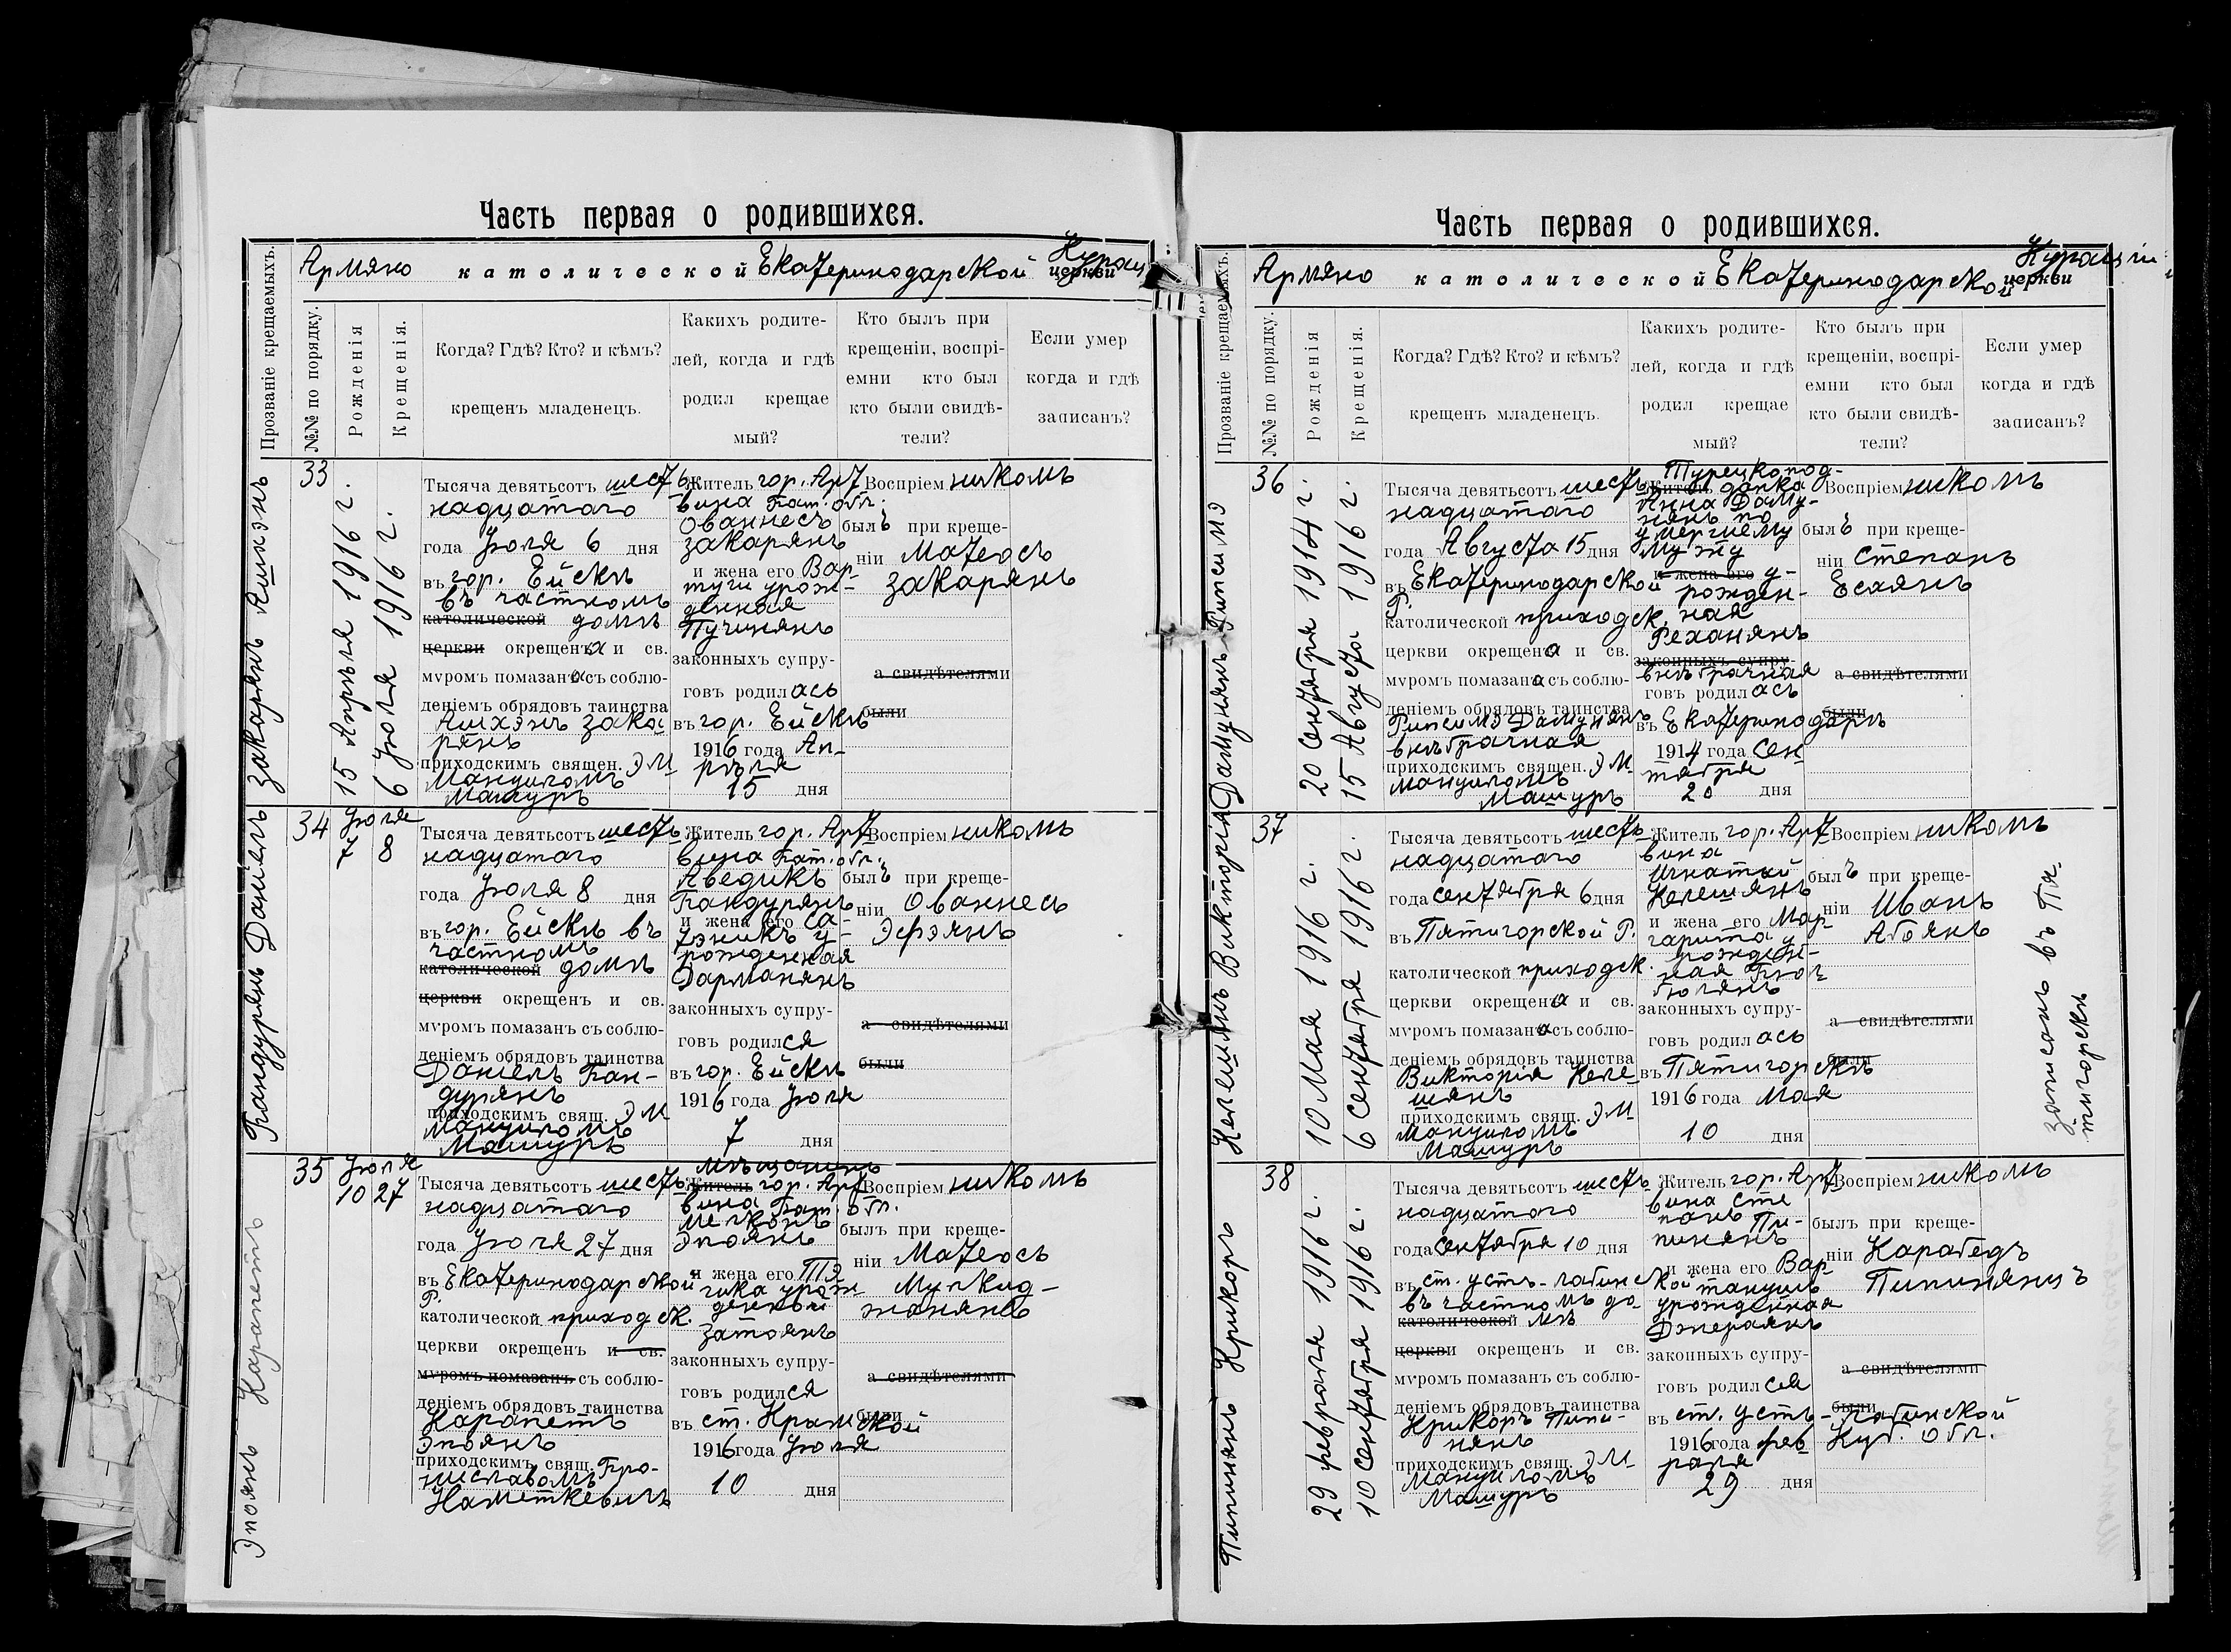 Часть первая о родившихся.
Армяно католической Екатеринодарской Курац
церкви
Прозваніе крещаемыхъ.
№№ по порядку.
Рожденія
Крещенія.
Когда? Гдѣ? Кто? и кѣмъ?
крещенъ младенецъ.
Какихъ родите-
лей, когда и гдѣ
родил крещае
мый?
Кто былъ при
крещеніи, воспрі-
емни кто был
кто были свидѣ-
тели?
Если умер
когда и гдѣ
записанъ?
Закарянъ Ашхэнъ
33
15 Апрѣля 1916 г.
6 Іюля 1916 г.
Тысяча девятьсотъ шесть
надцатаго
года Іюля 6 дня
въ гор. Ейскѣ
въ частномъ
католической домѣ
церкви окрещена и св.
мѵромъ помазана съ соблю-
деніемъ обрядовъ таинства
Ашхэнъ Зака
рянъ
приходскимъ священ. Э М
Мануиломъ
Машуръ
Житель гор. Арт
вина Бат. обл.
Ованнесъ
Закарянъ
и жена его Вар-
туги урож-
денная
Пучинянъ
законныхъ супру-
говъ родилась
въ гор. Ейскѣ
1916 года Ап-
рѣля
15 дня
Воспріем никомъ
былъ при креще-
ніи Матеосъ
Закарянъ
а свидѣтелями
были
Бандурянъ Даніелъ
34
Іюля
7 8
Тысяча девятьсотъ шесть
надцатаго
года Іюля 8 дня
въ гор. Ейскѣ въ
частномъ
католической домѣ
церкви окрещенъ и св.
мѵромъ помазан ъ съ соблю-
деніемъ обрядовъ таинства
Даніелъ Бан-
дурянъ
приходскимъ свящ. Э М
Мануиломъ
Машуръ
Житель гор. Арт
вина Бат. обл.
Аведикъ
Бандурянъ
и жена его Са-
тэникъ у-
рожденная
Дарманянъ
законныхъ супру-
говъ родился
въ гор. Ейскѣ
1916 года Іюля
7 дня
Воспріем никомъ
былъ при креще-
ніи Ованнесъ
Эфэянъ
а свидѣтелями
были
Эпоянъ Карапетъ
35
Іюля
10 27
Тысяча девятьсотъ шесть
надцатаго
года Іюля 27 дня
въ Екатеринодарской
Р.
католической приходск.
церкви окрещенъ и св.
мѵромъ помазанъ съ соблю-
деніемъ обрядовъ таинства
Карапетъ
Эпоянъ
приходскимъ свящ. Бро-
ниславомъ
Наметкевичъ
мѣщанинъ
Житель гор. Арт
вина Бат. обл.
Мелконъ
Эпоянъ
и жена его
урож
денная
Затоянъ
законныхъ супру-
говъ родился
въ ст. Крымской
1916 года Іюля
10 дня
Воспріем никомъ
былъ при креще-
ніи Матеосъ
жанянъ
а свидѣтелями
были
Часть первая о родившихся.
Армяно католической Екатеринодарской Кураціи
церкви
Прозваніе крещаемыхъ.
№№ по порядку.
Рожденія
Крещенія.
Когда? Гдѣ? Кто? и кѣмъ?
крещенъ младенецъ.
Какихъ родите-
лей, когда и гдѣ
родил крещае
мый?
Кто былъ при
крещеніи, воспрі-
емни кто был
кто были свидѣ-
тели?
Если умер
когда и гдѣ
записанъ?
Дамунянъ Рипсимэ
36
20 Сентября 1914 г.
15 Августа 1916 г.
Тысяча девятьсотъ шесть
надцатаго
года Августа 15 дня
въ Екатеринодарской
Р.
католической приходск.
церкви окрещена и св.
мѵромъ помазана съ соблю-
деніемъ обрядовъ таинства
Рипсимэ Дамунянъ
внѣбрачная
приходскимъ священ. Э М
Мануиломъ
Машуръ
Турецкопод-
Житель данка
Анна Даму-
нянъ по
умершему
мужу
и жена его у-
рожден-
ная
Реханянъ
законныхъ супру-
внѣбрачная
говъ родилась
въ Екатеринодарѣ
1914 года Сен
тября
20 дня
Воспріем никомъ
былъ при креще-
ніи Степанъ
Есаянъ
а свидѣтелями
были
Келешянъ Викторія
37
10 Мая 1916 г.
6 Сентября 1916 г.
Тысяча девятьсотъ шесть
надцатаго
года Сентября 6 дня
въ Пятигорской Р.
католической приходск.
церкви окрещена и св.
мѵромъ помазана съ соблю-
деніемъ обрядовъ таинства
Викторія Келе-
шянъ
приходскимъ свящ. Э М
Мануиломъ
Машуръ
Житель гор. Арт
вина
Игнатій
Келешянъ
и жена его Мар-
гарита у
рожден-
ная Бюл
бюлянъ
законныхъ супру-
говъ родилась
въ Пятигорскѣ
1916 года Мая
10 дня
Воспріем никомъ
былъ при креще-
ніи Иванъ
Абоянъ
а свидѣтелями
были
записанъ въ Пя-
тигорскѣ
Пипинянъ Крикоръ
38
29 февраля 1916 г.
10 Сентября 1916 г.
Тысяча девятьсотъ шесть
надцатаго
года Сентября 10 дня
въ ст. Усть-Лабинской
въ частномъ до-
католической мѣ
церкви окрещенъ и св.
мѵромъ помазан ъ съ соблю-
деніемъ обрядовъ таинства
Крикоръ Пипи-
нянъ
приходскимъ свящ. Э М
Мануиломъ
Машуръ
Житель гор. Арт
вина Сте
панъ Пи-
пинянъ
и жена его Вар-
танушъ
урожденная
Джпераянъ
законныхъ супру-
говъ родился
въ ст. Усть-Лабинской
1916 года фев Куб. Обл.
раля
29 дня
Воспріем никомъ
былъ при креще-
ніи Карабедъ
Пипинянцъ
а свидѣтелями
были